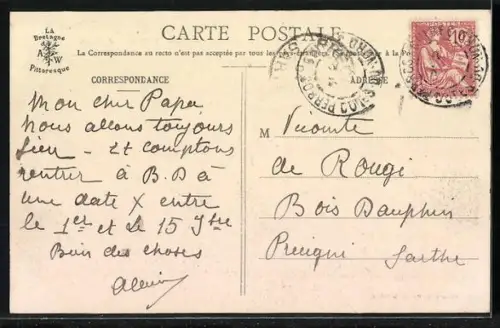 LA
Bretagne
A W
Pittoresque
CARTE POSTALE
La Correspondance au recto n'est pas acceptée par tous les
CORRESPONDANCE
ADRESSE
POSTES
10
PERROS
Mon cher Papa
Nous allons toujours
bien - et comptons
rentrer à B.D à
une date X entre
le 1er et le 15 7bre
Bien des choses
M Vicomte
de Rougé
Bois Dauphin
Précigné Sarthe